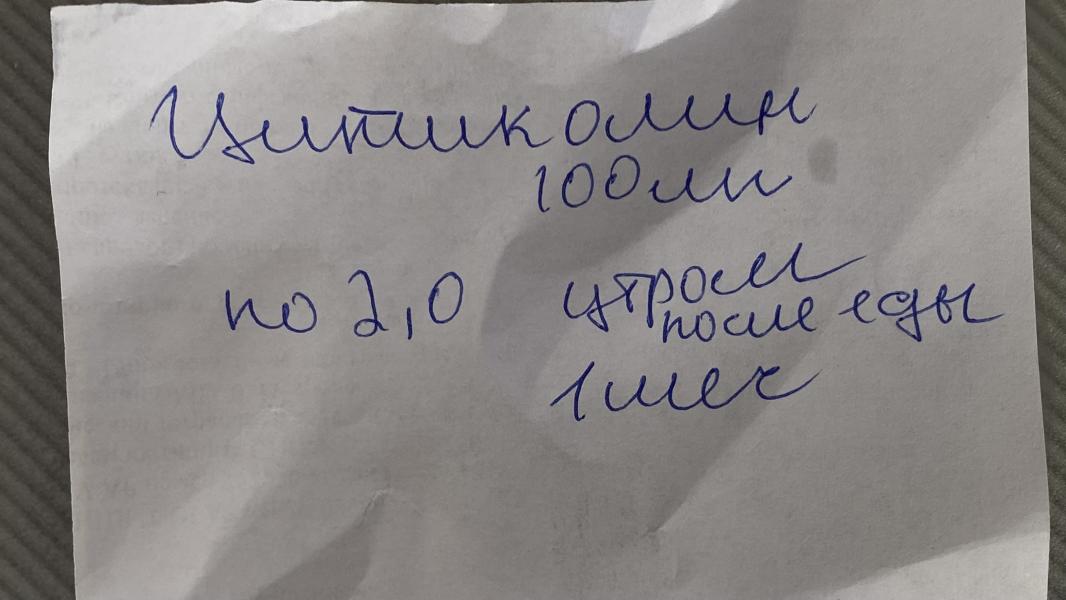 Цитиколин
100мл
по 2,0 утром
после еды
1 мес